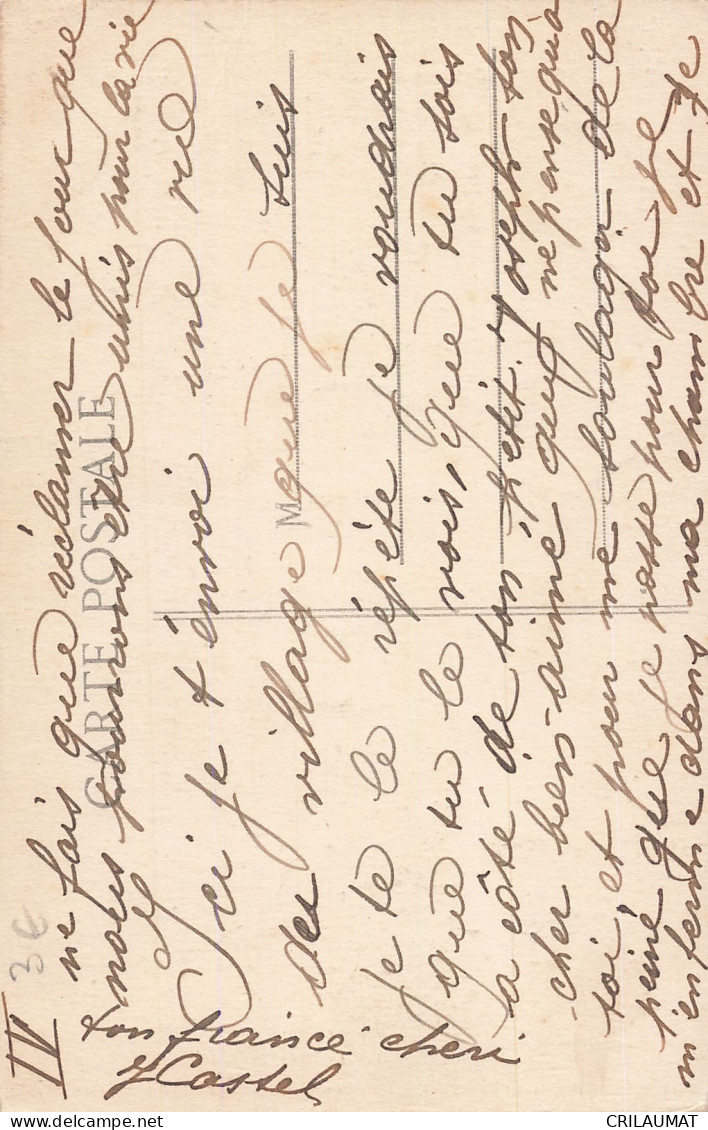 IV
3€
ne fais que réclamer le jour que
nous pourrons être unis pour la vie
CARTE POSTALE
ici je t'envoi une vue
des village que je suis
je te le répète je voudrais
que tu le vois, que tu sois
a côté de ton petit Joseph ton
cher bien-aimé qui ne pense qu'a
toi et pour me soulagir de la
peine que je passe pour toi je
m'enferme dans ma chambre et je
ton fiancé cheri
J Castel
CRILAUMAT